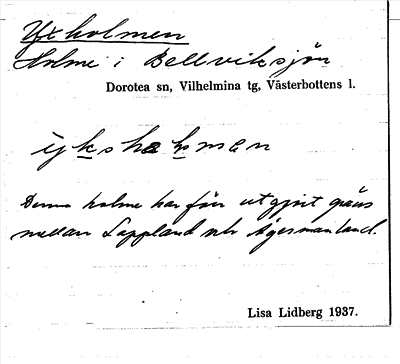 Yxholmen
Holme i Bellviksjön
Dorotea sn, Vilhelmina tg, Västerbottens l.
ykshɑhmen
Denna holme har förr utgjort gräns
mellan Lappland och Ågermanland.
Lisa Lidberg 1937.